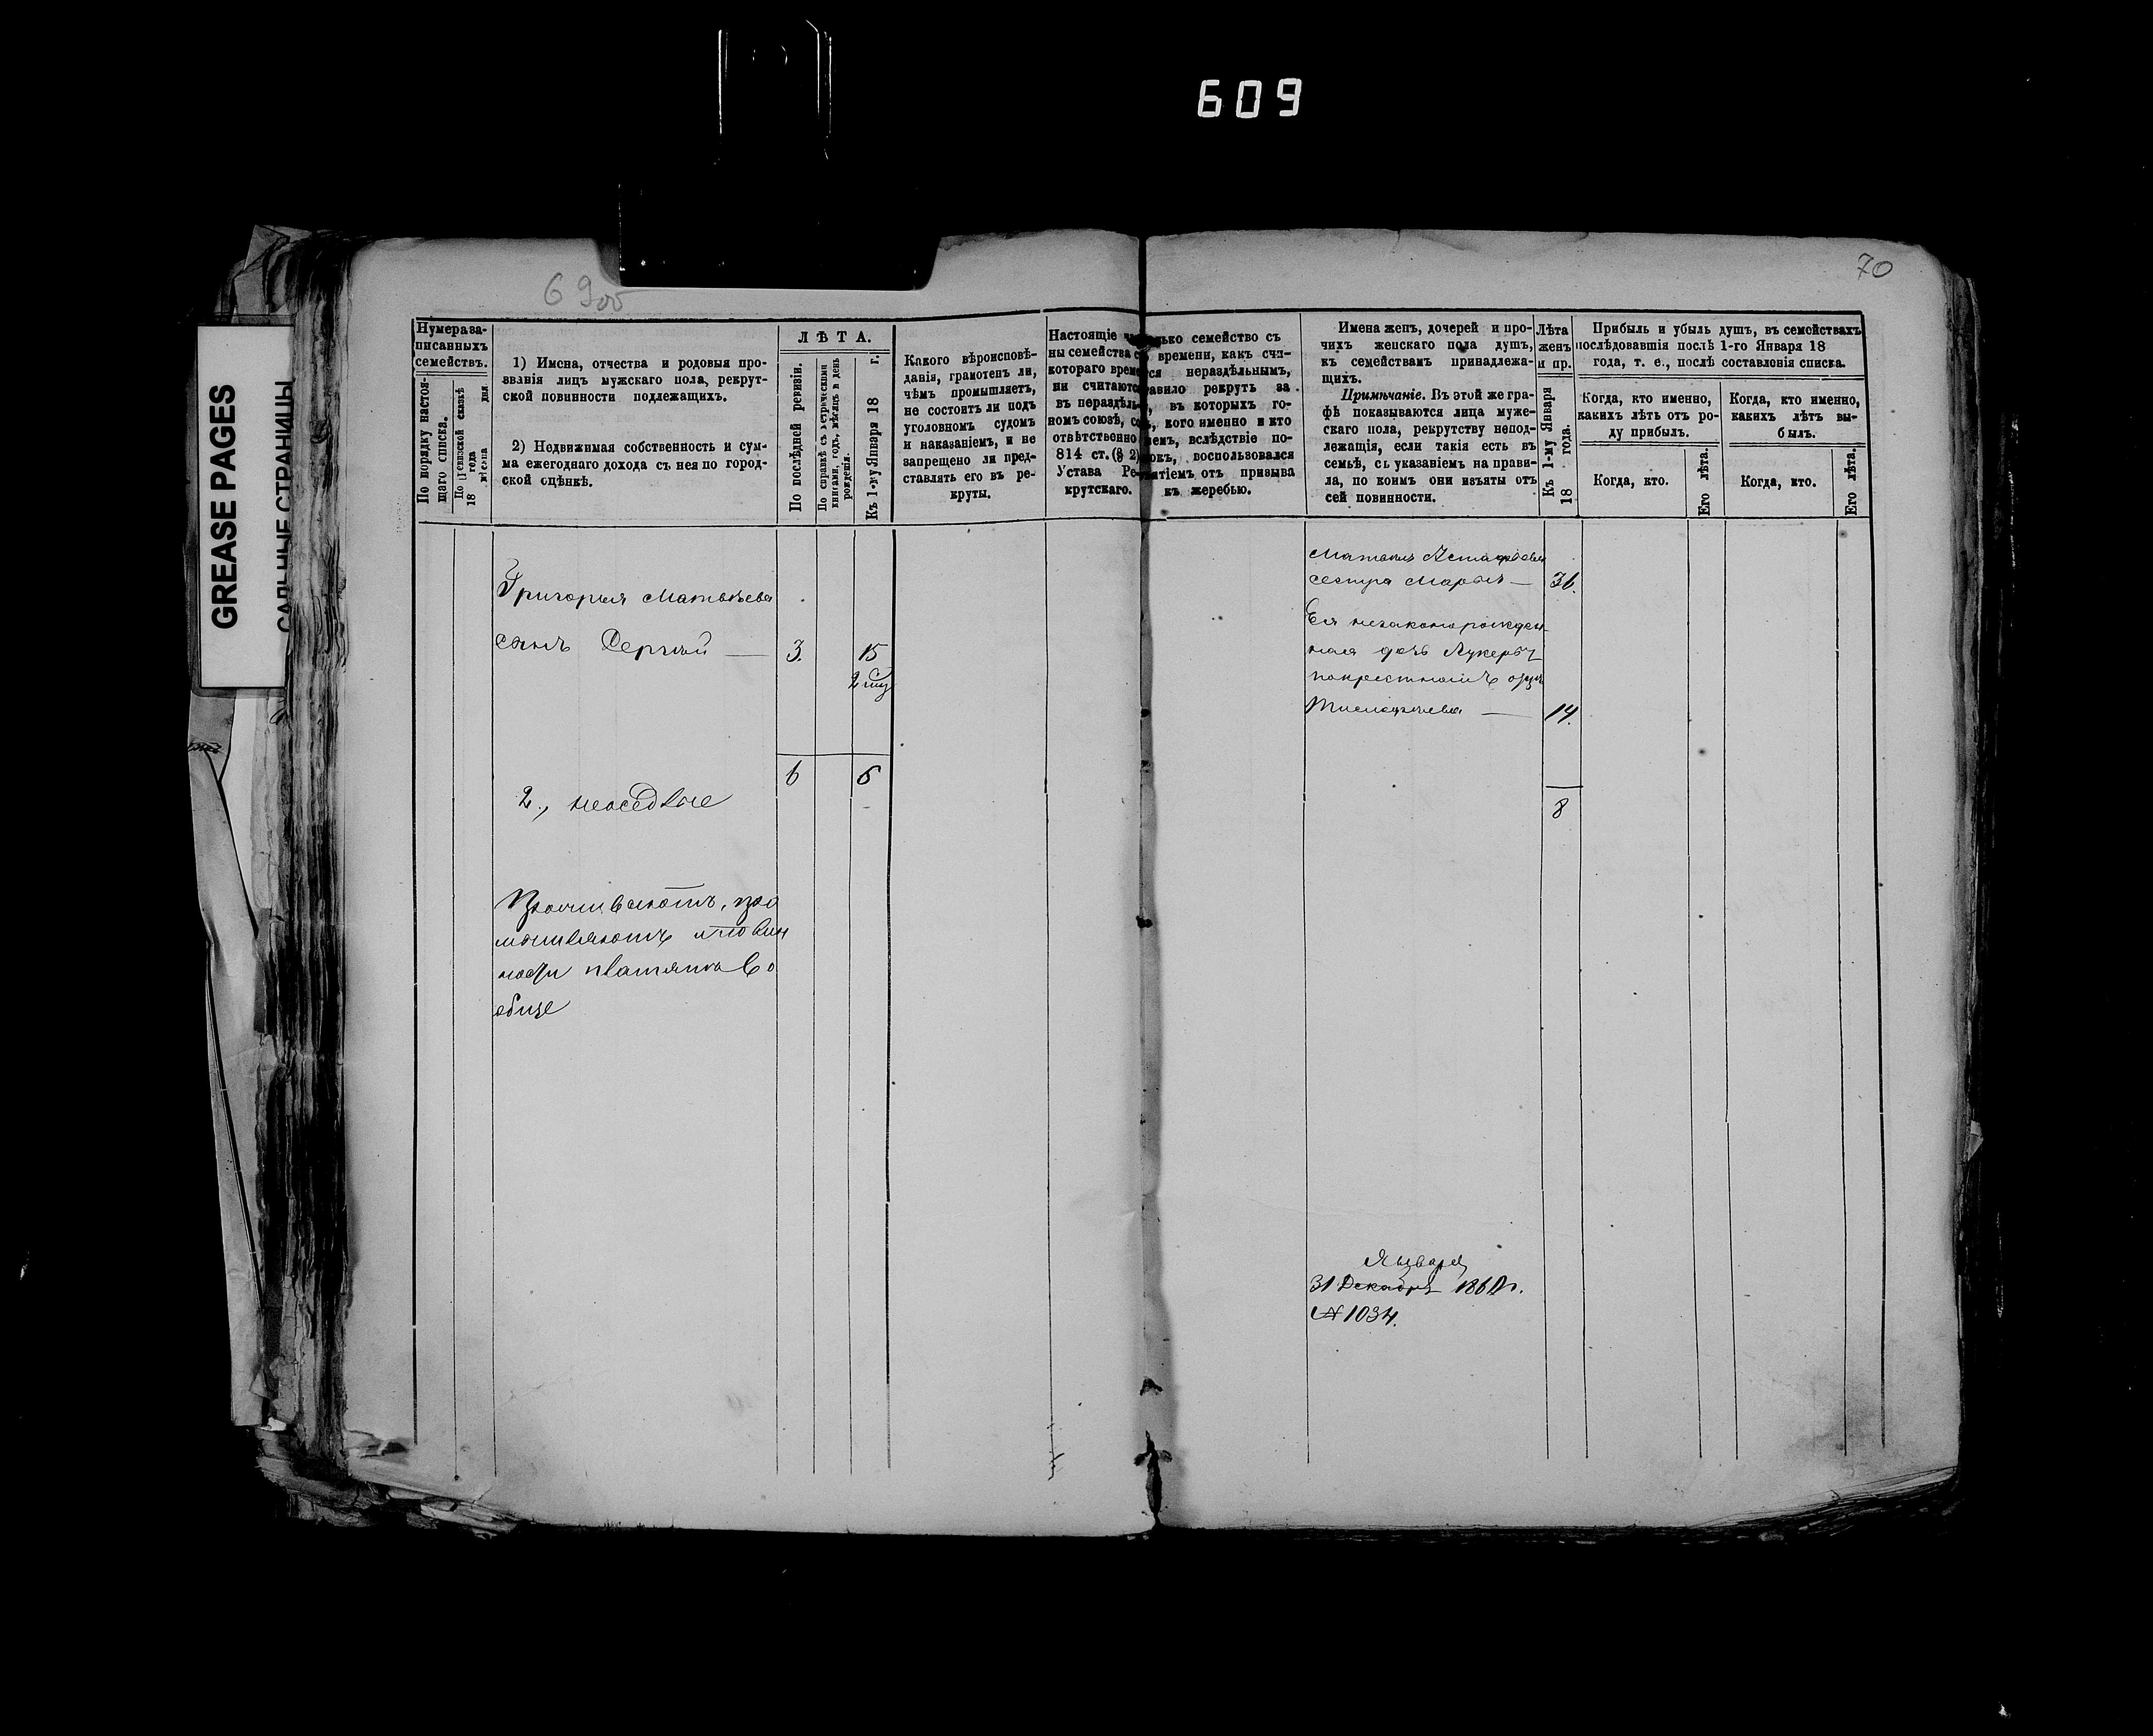 609
GREASE PAGES
САЛЬНЫЕ СТРАНИЦЫ
69об
70
Нумера за-
писанныхъ
семействъ.
По порядку настоя-
щаго списка.
По ревизской сказкѣ
18 года
дня
1) Имена, отчества и родовыя про-
званія лицъ мужскаго пола, рекрут-
ской повинности подлежащихъ.
2) Недвижимая собственность и сум-
ма ежегоднаго дохода съ нея по город-
ской оцѣнкѣ.
ЛѢТА.
По послѣдней ревизіи.
По справкѣ съ метрическими
книгами, годъ, мѣсяцъ и день
рожденія.
Къ 1-му Января 18 г.
Какого вѣроисповѣ-
данія, грамотенъ ли,
чѣмъ промышляетъ,
не состоитъ ли подъ
уголовномъ судомъ
и наказаніемъ, и не
запрещено ли пред-
ставлять его въ ре-
круты.
Настоящіе
ны семейства
котораго
ни считаются
въ
номъ союзѣ,
отвѣтственно
814 ст. (§ 2)
Устава Ре-
крутскаго.
семейство съ
времени, какъ счи-
нераздѣльнымъ,
рекрутъ за
въ которыхъ го-
кого именно и кто
вслѣдствіе по-
воспользовался
отъ призыва
къ жеребью.
Имена женъ, дочерей и про-
чихъ женскаго пола душъ,
къ семействамъ принадлежа-
щихъ.
Примѣчаніе. Въ этой же гра-
фѣ показываются лица муже-
скаго пола, рекрутству непод-
лежащія, если такія есть въ
семьѣ, съ указаніемъ на прави-
ла, по коимъ они изъяты отъ
сей повинности.
Лѣта
женъ
и пр.
Къ 1-му Января
18 года.
Прибыль и убыль душъ, въ семействахъ
послѣдовавшія послѣ 1-го Января 18
года, т. е., послѣ составленія списка.
Когда, кто именно,
какихъ лѣтъ отъ ро-
ду прибылъ.
Когда, кто именно,
какихъ лѣтъ вы-
былъ.
Когда, кто.
Его лѣта.
Когда, кто.
Его лѣта.
Григорья Матвѣева
сынъ Сергѣй — 3. 15
6 6
2., неосѣдлые
Проживаютъ, про
мышляютъ и повин
ности платятъ во
обще
сестра Марья — 36.
Ея незаконорожден-
ная дочь Лукерья
по крестному отцу
14.
8
Января
31 Декабря 186 г.
№ 1034.